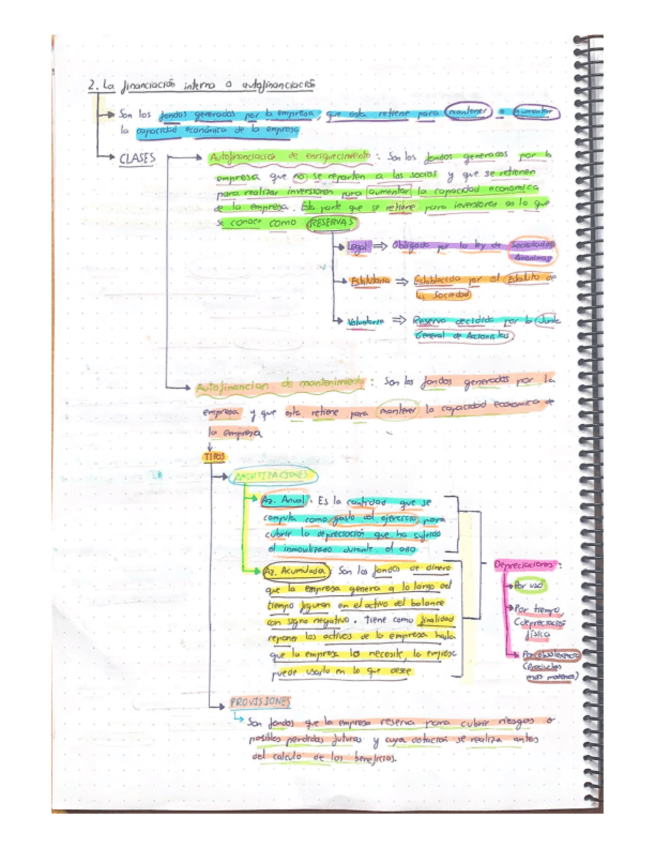 2. La financiación interna o autofinanciación
Son los fondos generados por la empresa, que esta retiene para mantener o aumentar
la capacidad económica de la empresa
CLASES
Autofinanciación de enriquecimiento: Son los fondos generados por la
empresa que no se reparten a los socios y que se retienen
para realizar inversiones para aumentar la capacidad economica
de la empresa. Esta parte que se retiene para inversiones es lo que
se conoce como RESERVAS
Legal ⇒ Obligada por la ley de Sociedades
Anonimas
Estatutaria ⇒ Establecida por el Estatuto de
la Sociedad
Voluntaria ⇒ Reserva decidida por la Junta
General de Accionistas
Autofinancian de mantenimiento: Son los fondos generados por la
empresa y que esta retiene para mantener la capacidad economica de
la empresa
TIPOS
AMORTIZACIONES
Az. Anual. Es la cantidad que se
computa como gasto del ejercicio para
cubrir la depreciación que ha sufrido
el inmovilizado durante el año
Az. Acumulada: Son los fondos de dinero
que la empresa genera a lo largo del
tiempo figuran en el activo del balance
con signo negativo. Tiene como finalidad
reponer los activos de la empresa hasta
que la empresa los necesite, la empresa
puede usarlo en lo que desee
Depreciaciones:
Por uso
Por tiempo
(depreciación
física)
Por obsolescencia
(Productos
más modernos)
PROVISIONES
Son fondos que la empresa reserva para cubrir riesgos o
posibles perdidas futuras y cuya dotación se realiza antes
del calculo de los beneficios.